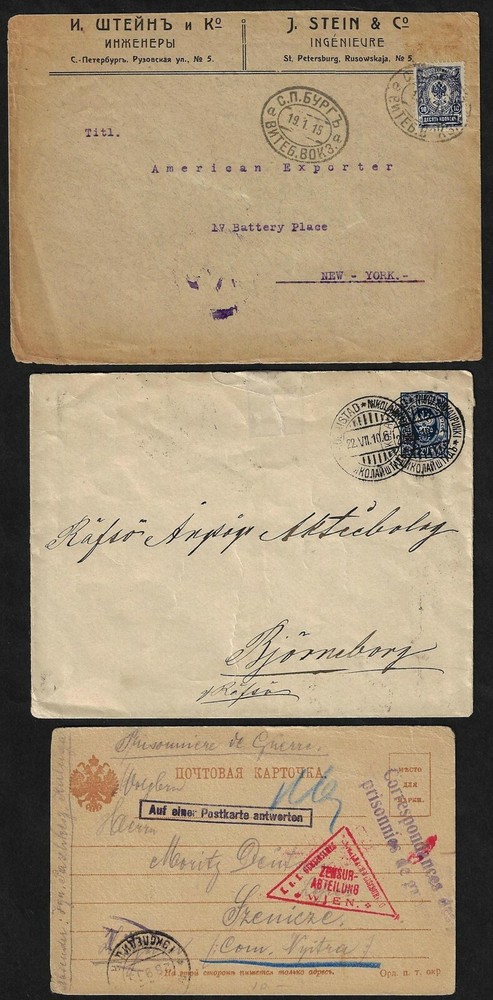 И. ШТЕЙНЪ и Кº
ИНЖЕНЕРЫ
С.-Петербургъ. Рузовская ул., № 5.
J. STEIN & Cº
INGÉNIEURE
St. Petersburg, Rusowskaja. № 5.
С.П.БУРГЪ
19.1.15
ВИТЕБ. ВОКЗ.
ВИТЕБ. ВОКЗ.
Titl.
American Exporter
17 Battery Place
NEW - YORK.-
22.VII.10
Räfsö Ångsågs Aktiebolag
Björneborg
Räfsö
Prisonniere de Guerre.
ПОЧТОВАЯ КАРТОЧКА.
МѢСТО
ДЛЯ
МАРКИ.
Auf einer Postkarte antworten
Herrn
Moritz
Correspondances des
prisonniers de
ZENSUR-
ABTEILUNG
WIEN.
Szenicze
Com. Nyitra
На этой сторонѣ пишется только адресъ.